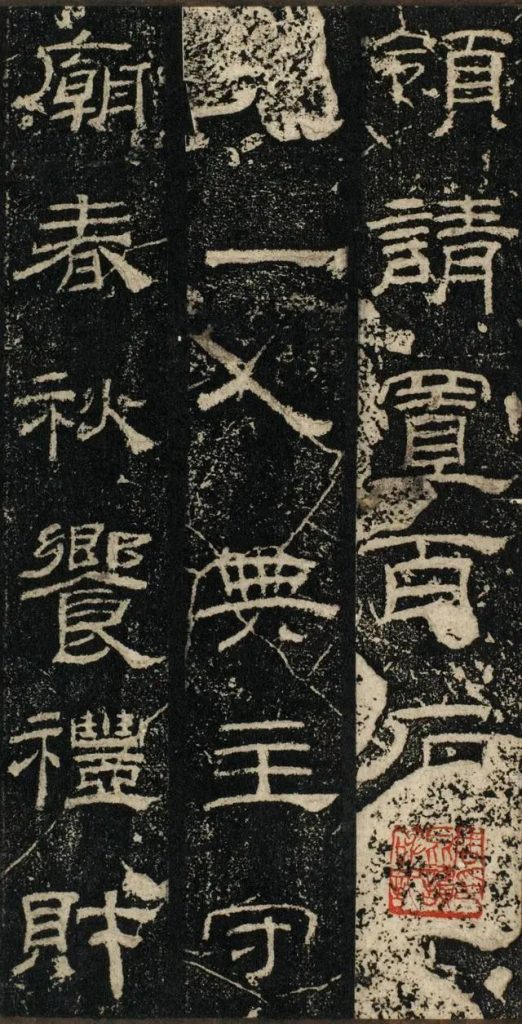 領請置百石
一人典主守
廟春秋饗禮財